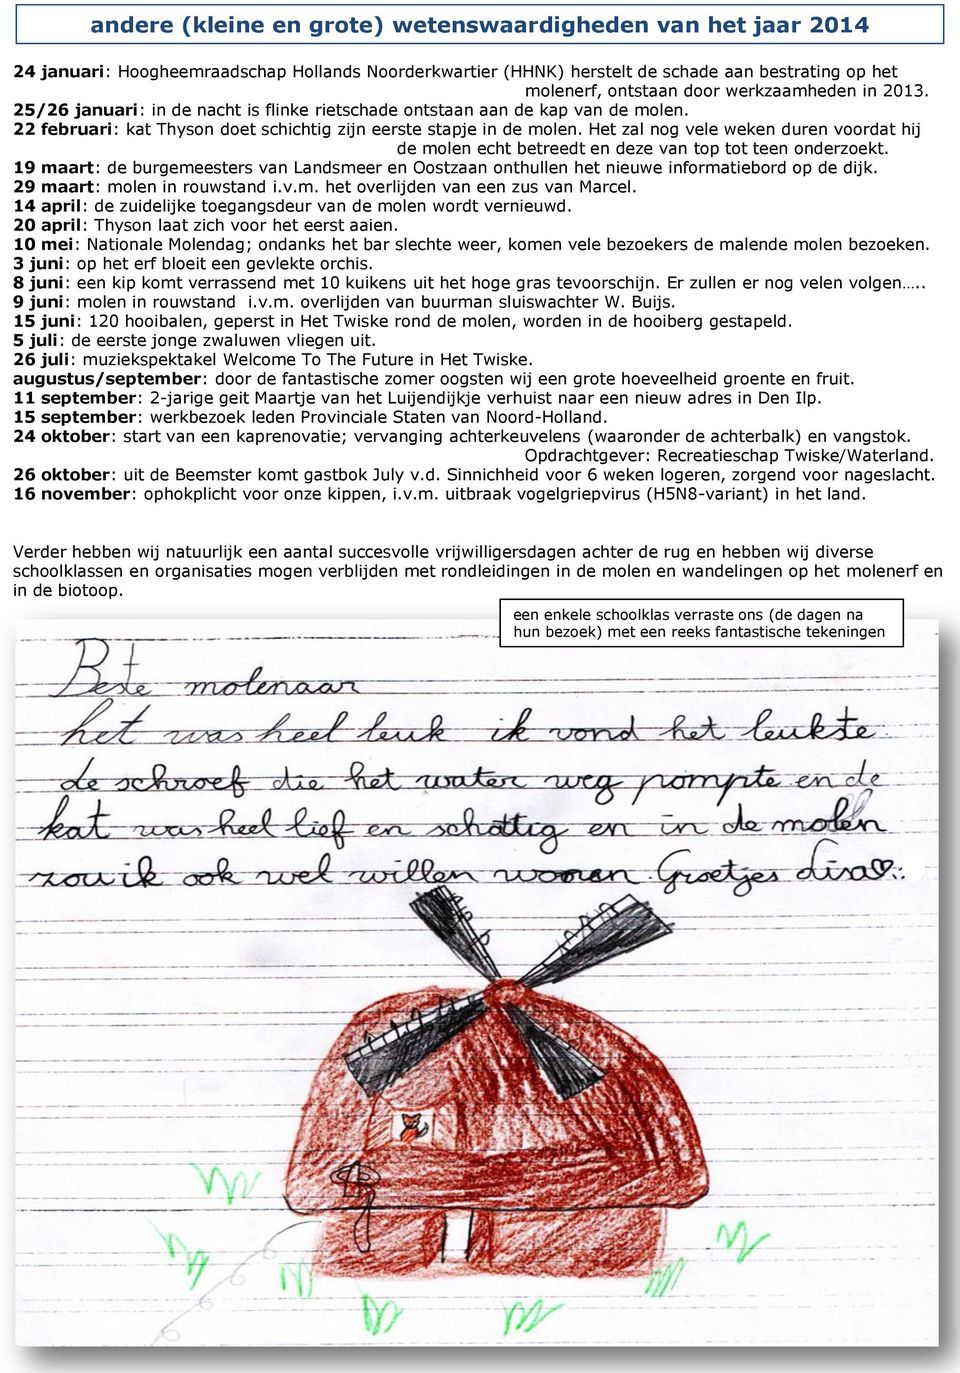 andere (kleine en grote) wetenswaardigheden van het jaar 2014
24 januari: Hoogheemraadschap Hollands Noorderkwartier (HHNK) herstelt de schade aan bestrating op het
molenerf, ontstaan door werkzaamheden in 2013.
25/26 januari: in de nacht is flinke rietschade ontstaan aan de kap van de molen.
22 februari: kat Thyson doet schichtig zijn eerste stapje in de molen. Het zal nog vele weken duren voordat hij
de molen echt betreedt en deze van top tot teen onderzoekt.
19 maart: de burgemeesters van Landsmeer en Oostzaan onthullen het nieuwe informatiebord op de dijk.
29 maart: molen in rouwstand i.v.m. het overlijden van een zus van Marcel.
14 april: de zuidelijke toegangsdeur van de molen wordt vernieuwd.
20 april: Thyson laat zich voor het eerst aaien.
10 mei: Nationale Molendag; ondanks het bar slechte weer, komen vele bezoekers de malende molen bezoeken.
3 juni: op het erf bloeit een gevlekte orchis.
8 juni: een kip komt verrassend met 10 kuikens uit het hoge gras tevoorschijn. Er zullen er nog velen volgen…..
9 juni: molen in rouwstand i.v.m. overlijden van buurman sluiswachter W. Buijs.
15 juni: 120 hooibalen, geperst in Het Twiske rond de molen, worden in de hooiberg gestapeld.
5 juli: de eerste jonge zwaluwen vliegen uit.
26 juli: muziekspektakel Welcome To The Future in Het Twiske.
augustus/september: door de fantastische zomer oogsten wij een grote hoeveelheid groente en fruit.
11 september: 2-jarige geit Maartje van het Luijendijkje verhuist naar een nieuw adres in Den Ilp.
15 september: werkbezoek leden Provinciale Staten van Noord-Holland.
24 oktober: start van een kaprenovatie; vervanging achterkeuvelens (waaronder de achterbalk) en vangstok.
Opdrachtgever: Recreatieschap Twiske/Waterland.
26 oktober: uit de Beemster komt gastbok July v.d. Sinnichheid voor 6 weken logeren, zorgend voor nageslacht.
16 november: ophokplicht voor onze kippen, i.v.m. uitbraak vogelgriepvirus (H5N8-variant) in het land.
Verder hebben wij natuurlijk een aantal succesvolle vrijwilligersdagen achter de rug en hebben wij diverse
schoolklassen en organisaties mogen verblijden met rondleidingen in de molen en wandelingen op het molenerf en
in de biotoop.
een enkele schoolklas verraste ons (de dagen na
hun bezoek) met een reeks fantastische tekeningen
Beste molenaar
het was heel leuk ik vond het leukste
de schroef die het water weg pompte en de
kat was heel lief en schattig en in de molen
zou ik ook wel willen wonen. Groetjes Lisa